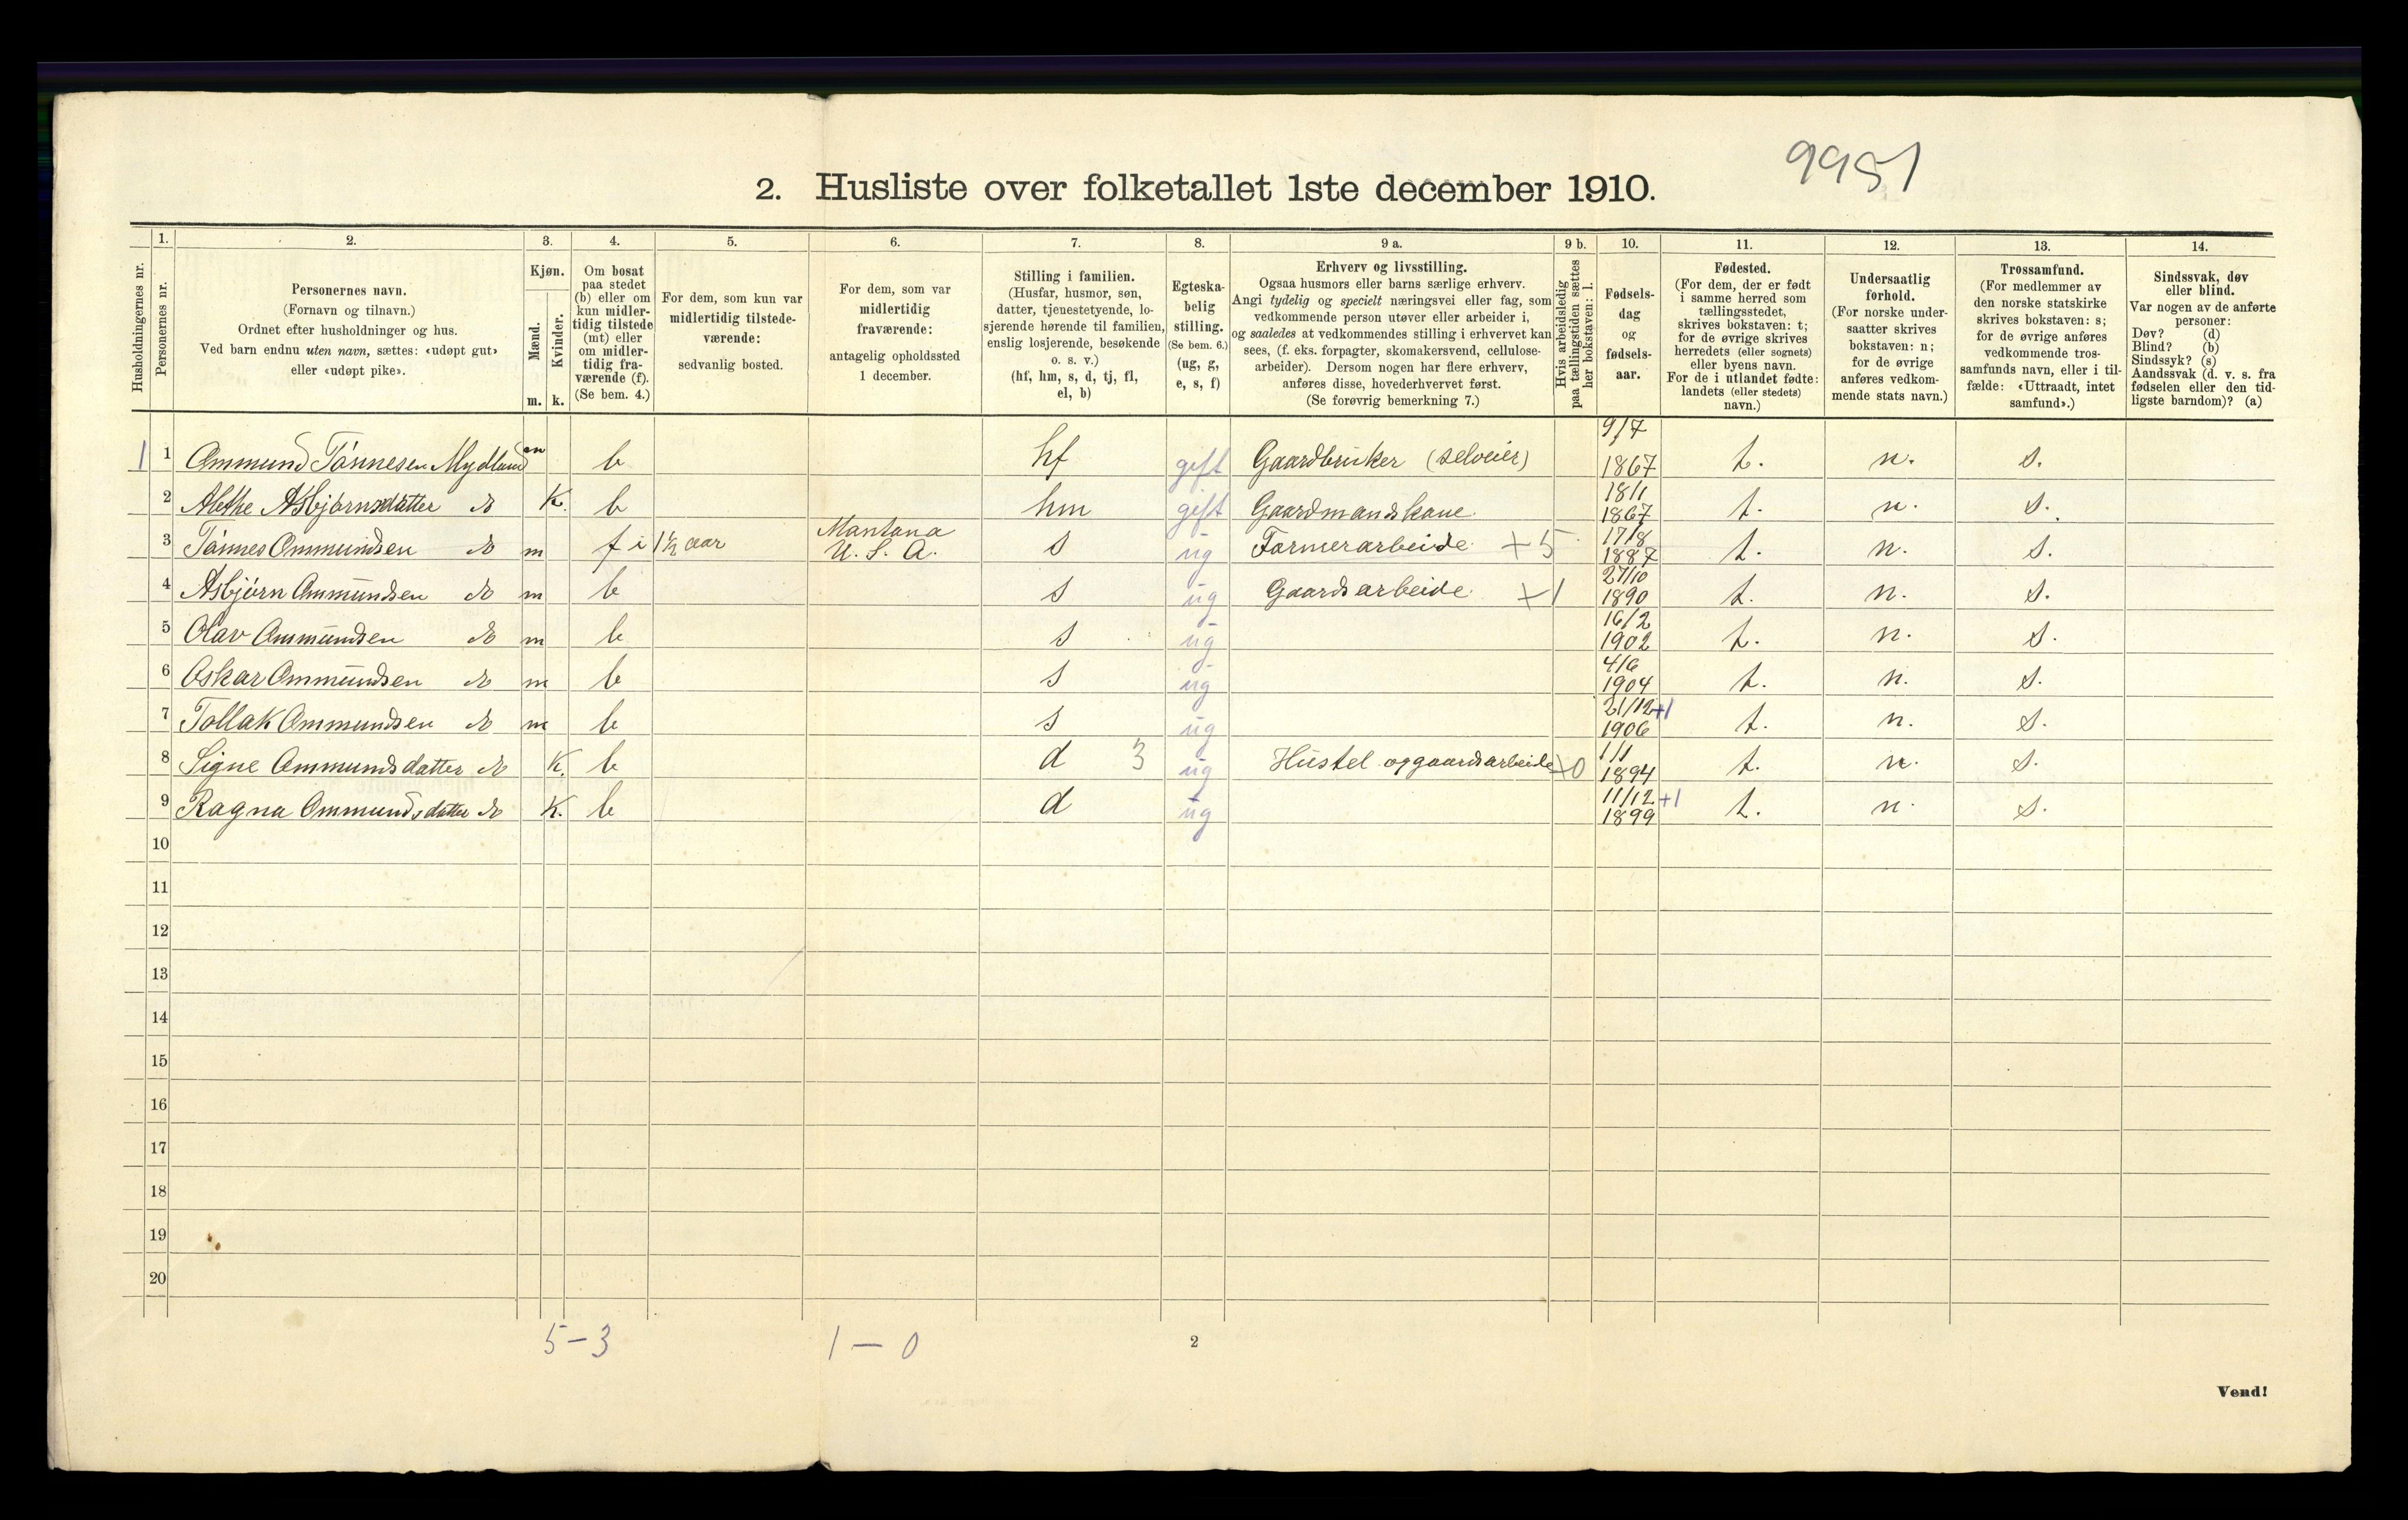 9951
2. Husliste over folketallet 1ste december 1910.
Husholdningernes nr.
1.
Personernes nr.
2.
Personernes navn.
(Fornavn og tilnavn.)
Ordnet efter husholdninger og hus.
Ved barn endnu uten navn, sættes: «udøpt gut»
eller «udøpt pike».
3.
Kjøn.
Mænd.
Kvinder.
m. k.
4.
Om bosat
paa stedet
(b) eller om
kun midler-
tidig tilstede
(mt) eller
om midler-
tidig fra-
værende (f).
(Se bem. 4.)
5.
For dem, som kun var
midlertidig tilstede-
værende:
sedvanlig bosted.
6.
For dem, som var
midlertidig
fraværende:
antagelig opholdssted
1 december.
7.
Stilling i familien.
(Husfar, husmor, søn,
datter, tjenestetyende, lo-
sjerende hørende til familien,
enslig losjerende, besøkende
o. s. v.)
(hf, hm, s, d, tj, fl,
el, b)
8.
Egteska-
belig
stilling.
(Se bem. 6.)
(ug, g,
e, s, f)
9 a.
Erhverv og livsstilling.
Ogsaa husmors eller barns særlige erhverv.
Angi tydelig og specielt næringsvei eller fag, som
vedkommende person utøver eller arbeider i,
og saaledes at vedkommendes stilling i erhvervet kan
sees, (f. eks. forpagter, skomakersvend, cellulose-
arbeider). Dersom nogen har flere erhverv,
anføres disse, hovederhvervet først.
(Se forøvrig bemerkning 7.)
9 b.
Hvis arbeidsledig
paa tællingstiden sættes
her bokstaven: l.
10.
Fødsels-
dag
og
fødsels-
aar.
11.
Fødested.
(For dem, der er født
i samme herred som
tællingsstedet,
skrives bokstaven: t;
for de øvrige skrives
herredets (eller sognets)
eller byens navn.
For de i utlandet fødte:
landets (eller stedets)
navn.)
12.
Undersaatlig
forhold.
(For norske under-
saatter skrives
bokstaven: n;
for de øvrige
anføres vedkom-
mende stats navn.)
13.
Trossamfund.
(For medlemmer av
den norske statskirke
skrives bokstaven: s;
for de øvrige anføres
vedkommende tros-
samfunds navn, eller i til-
fælde: «Uttraadt, intet
samfund».)
14.
Sindssvak, døv
eller blind.
Var nogen av de anførte
personer:
Døv? (d)
Blind? (b)
Sindssyk? (s)
Aandssvak (d. v. s. fra
fødselen eller den tid-
ligste barndom)? (a)
1 1 Ommund Tønnesen Mydland m b hf gift Gaardbruker (selveier) 9/7 1867 t. n. s.
2 Alethe Asbjørnsdatter do K. b hm gift Gaardmandskone 18/1 1867 t. n. s.
3 Tønnes Ommundsen do m f i 1½ aar Mantana U. S. A. s ug Farmerarbeide +5 17/8 1887 t. n. s.
4 Asbjørn Ommundsen do m b s ug Gaardsarbeide +1 27/10 1890 t. n. s.
5 Olav Ommundsen do m b s ug 16/2 1902 t. n. s.
6 Oskar Ommundsen do m b s ug 4/6 1904 t. n. s.
7 Tollak Ommundsen do m b s ug 21/12 +1 1906 t. n. s.
8 Signe Ommundsdatter do K. b d 3 ug Hustel og gaardsarbeide +0 1/1 1894 t. n. s.
9 Ragna Ommundsdatter do K. b d ug 11/12 +1 1899 t. n. s.
10
11
12
13
14
15
16
17
18
19
20
5 – 3 1 – 0
2
Vend!